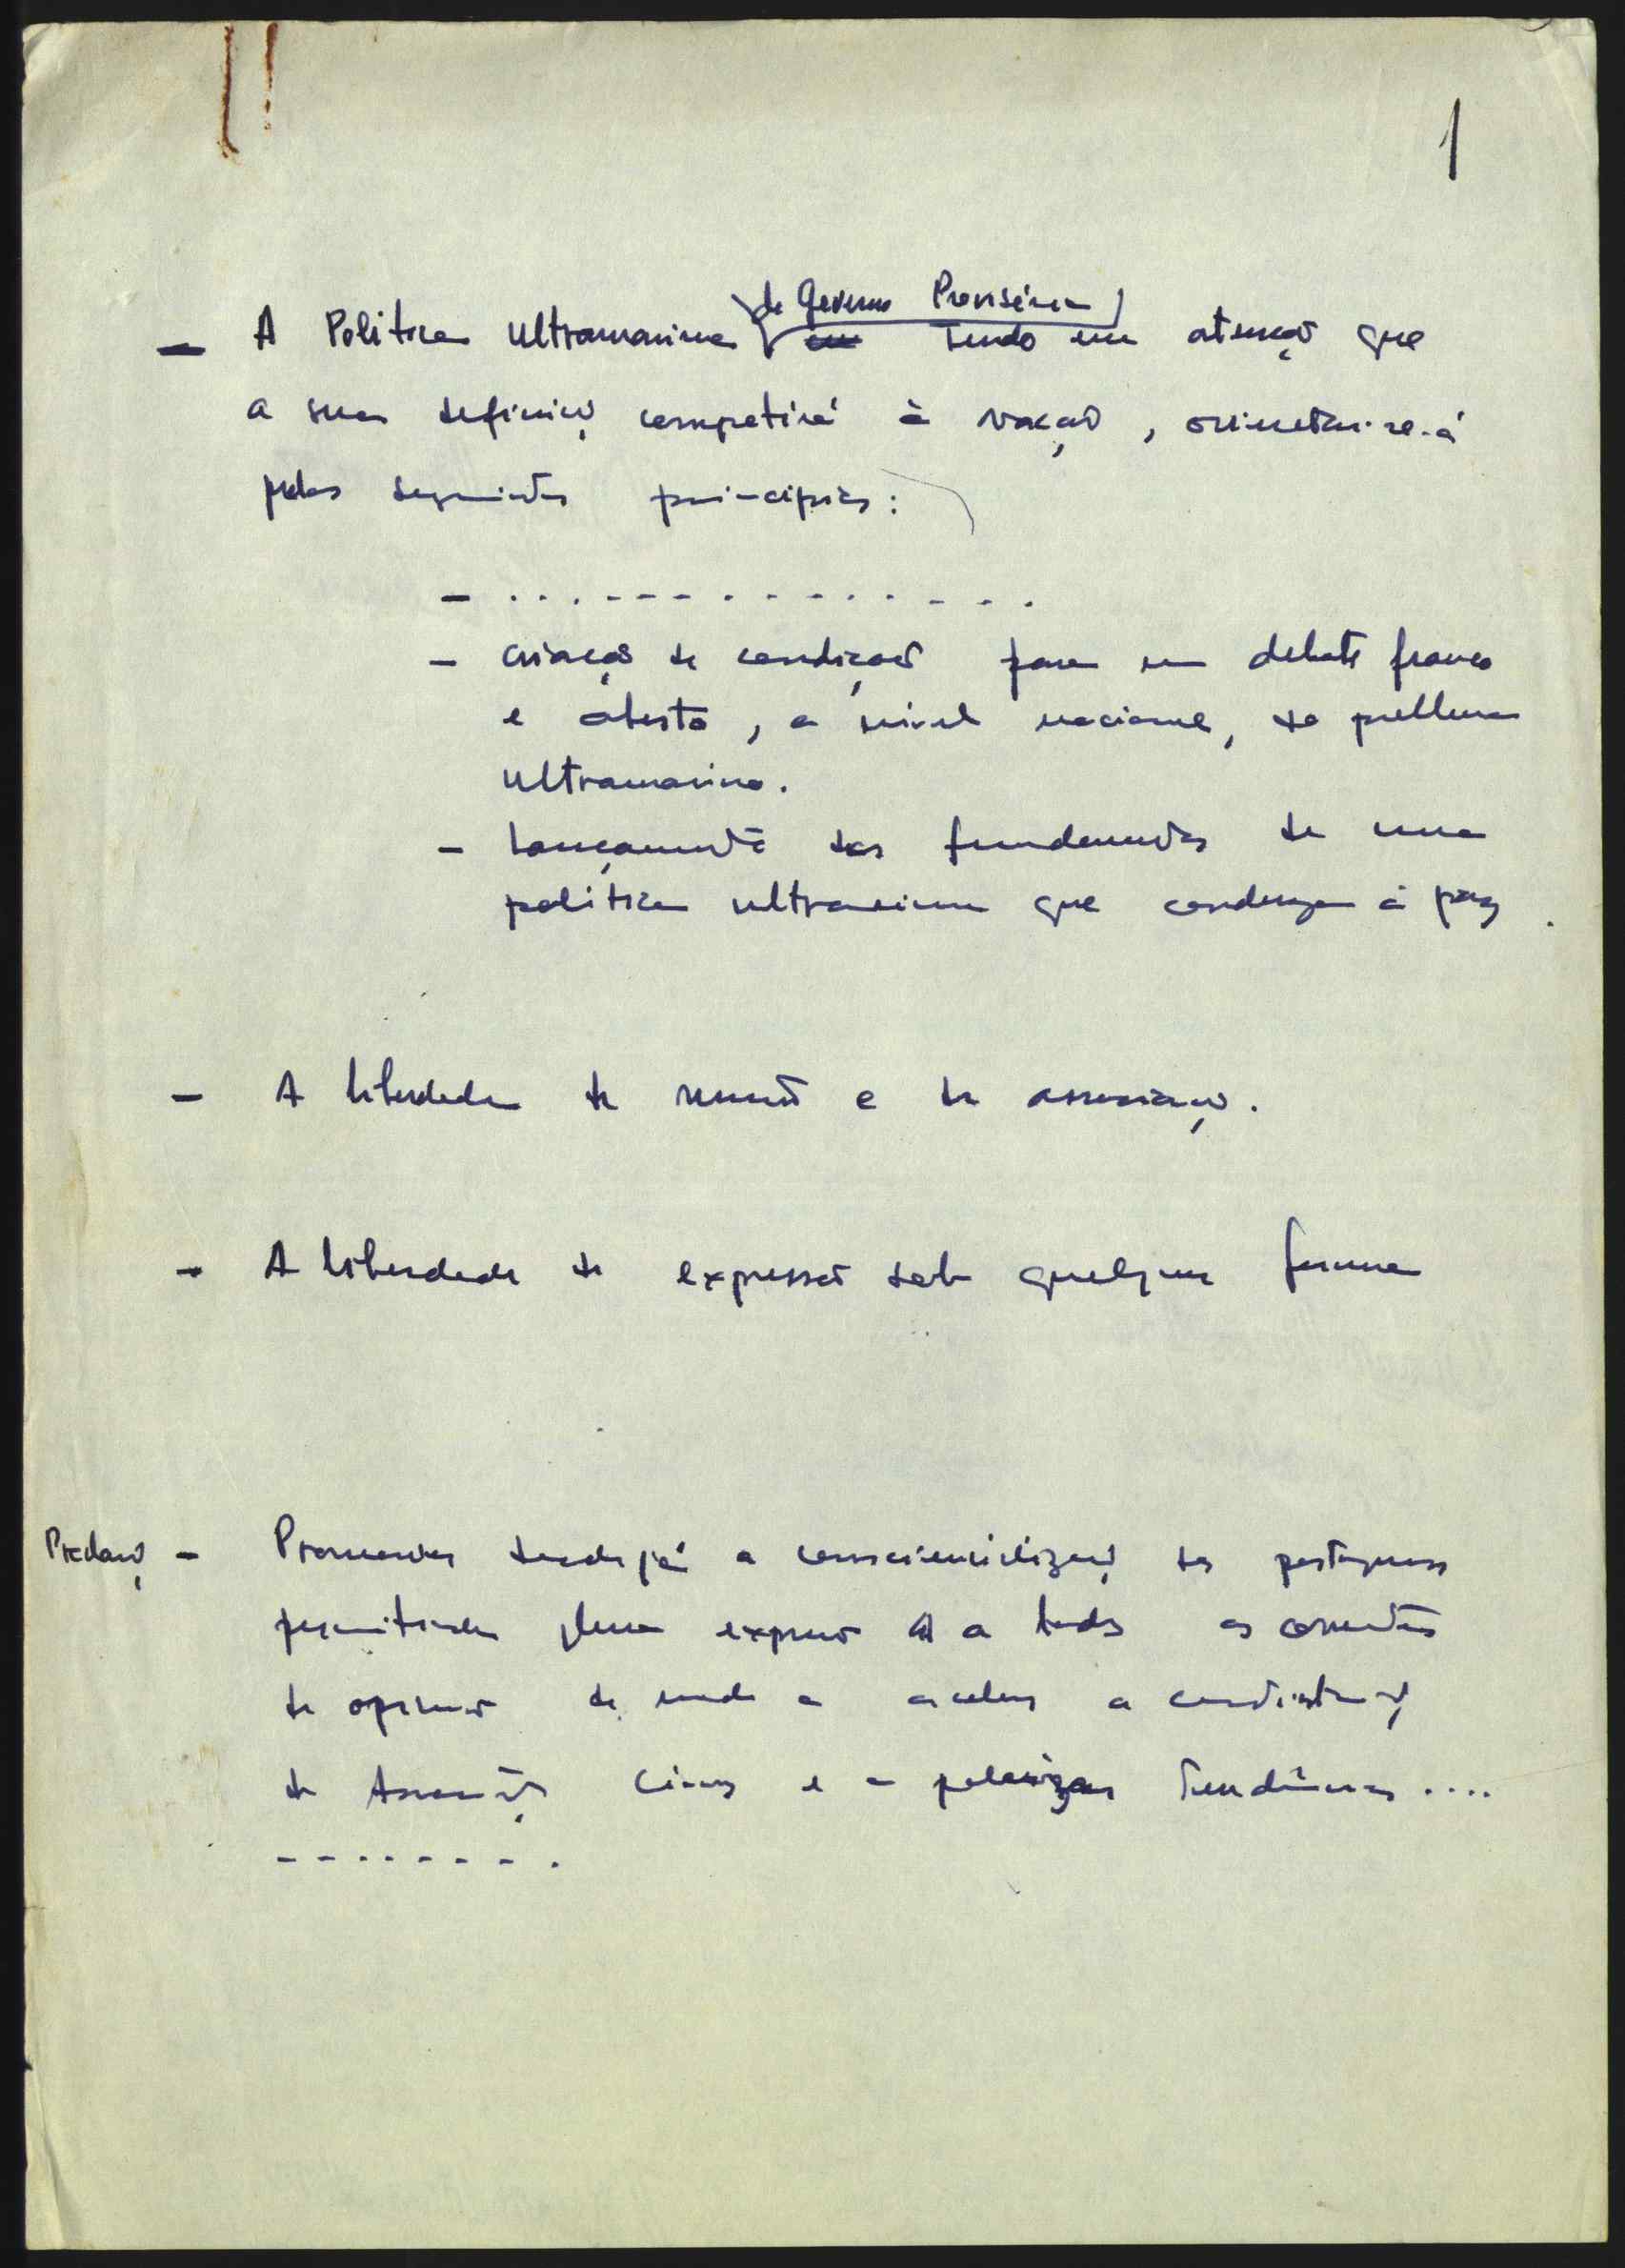 1
do Governo Provisório
— A Politica Ultramarina tendo em atenção que
a sua definição competirá à Nação, orientar-se-á
pelos seguintes principios:
- . . . - - - . . . . . - - - .
- criação de condições para um debate franco
e aberto, a nivel nacional, do problema
ultramarino.
- Lançamento dos fundamentos de uma
politica ultramarina que conduza à paz.
- A liberdade de reunião e de associação.
- A liberdade de expressão sob qualquer forma
Redação - Promover desde já a consciencialização dos portugueses
permitindo plena expressão a todas as correntes
de opinião de modo a acelerar a constituição
de Associações Civicas e a polarizar tendências ....
- - . . . . - - .